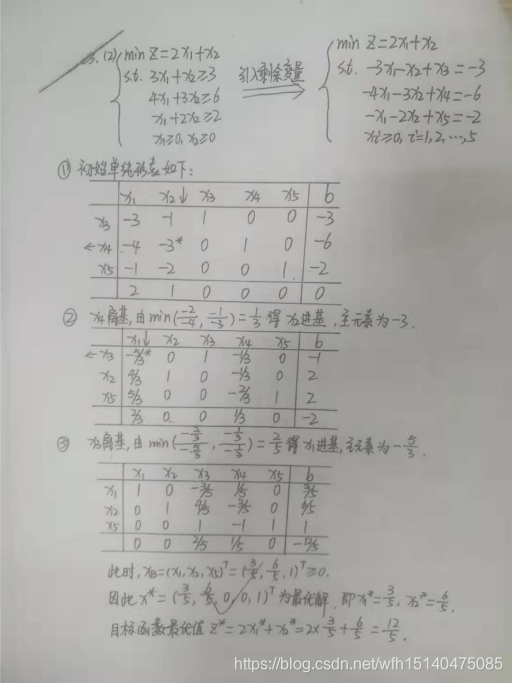 3.(2) min Z=2x₁+x₂
s.t. 3x₁+x₂≥3
4x₁+3x₂≥6
x₁+2x₂≥2
x₁≥0, x₂≥0
引入剩余变量
min Z=2x₁+x₂
s.t. -3x₁-x₂+x₃=-3
-4x₁-3x₂+x₄=-6
-x₁-2x₂+x₅=-2
xi≥0, i=1,2,…,5
① 初始单纯形表如下:
x₁ x₂↓ x₃ x₄ x₅ b
x₃ -3 -1 1 0 0 -3
←x₄ -4 -3* 0 1 0 -6
x₅ -1 -2 0 0 1 -2
2 1 0 0 0 0
② x₄离基,由min(-2/-4, -1/-3)=1/3 得x₂进基,主元素为-3.
x₁↓ x₂ x₃ x₄ x₅ b
←x₃ -5/3* 0 1 -1/3 0 -1
x₂ 4/3 1 0 -1/3 0 2
x₅ 5/3 0 0 -2/3 1 2
2/3 0 0 1/3 0 -2
③ x₃离基,由min(-2/3/-5/3, -1/3/-1/3)=2/5 得x₁进基,主元素为-5/3.
x₁ x₂ x₃ x₄ x₅ b
x₁ 1 0 -3/5 1/5 0 3/5
x₂ 0 1 4/5 -3/5 0 6/5
x₅ 0 0 1 -1 1 1
0 0 2/5 1/5 0 -12/5
此时, xB=(x₁,x₂,x₅)ᵀ=(3/5, 6/5, 1)ᵀ≥0.
因此x*=(3/5, 6/5, 0, 0, 1)ᵀ为最优解,即x₁*=3/5, x₂*=6/5.
目标函数最优值 z*=2x₁*+x₂*=2×3/5+6/5=12/5.
https://blog.csdn.net/wfh15140475085